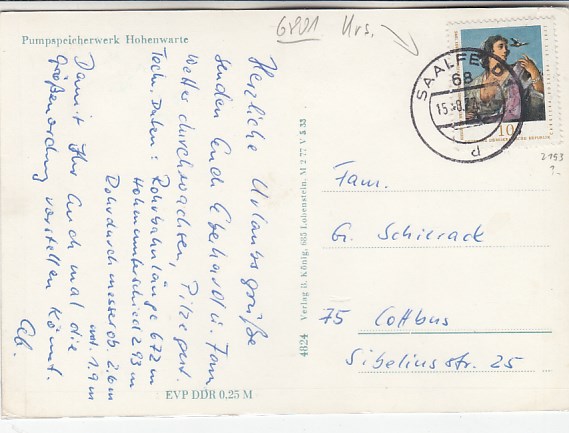 Pumpspeicherwerk Hohenwarte
6801 Urs.
SAALFELD
68
15.-8.77
d
10
2193
?-
Herzliche Urlaubsgrüße
senden Euch Eberhard u. Fam
Wetter durchwachsen, Pilze gut.
Techn. Daten: Rohrbahnlänge 672 m
Höhenunterschied 293 m
Rohrdurchmesser ob. 2.6 m
unt. 1.9 m
Damit Ihr Euch mal die
Größenordnung vorstellen könnt.
Eb.
EVP DDR 0,25 M
4824 Verlag B. König, 685 Lobenstein, M 2 77 V 5 33
Fam.
G. Schierack
75 Cottbus
Sibeliusstr. 25